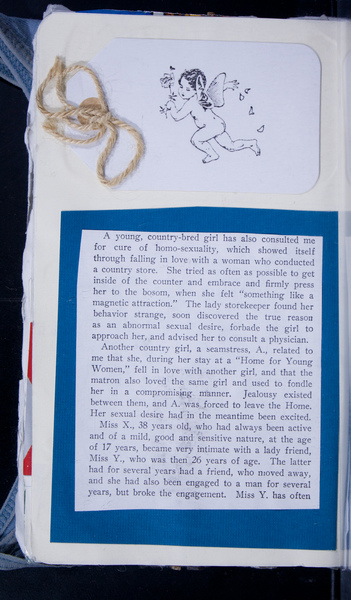 A young, country-bred girl has also consulted me
for cure of homo-sexuality, which showed itself
through falling in love with a woman who conducted
a country store. She tried as often as possible to get
inside of the counter and embrace and firmly press
her to the bosom, when she felt "something like a
magnetic attraction." The lady storekeeper found her
behavior strange, soon discovered the true reason
as an abnormal sexual desire, forbade the girl to
approach her, and advised her to consult a physician.
Another country girl, a seamstress, A., related to
me that she, during her stay at a "Home for Young
Women," fell in love with another girl, and that the
matron also loved the same girl and used to fondle
her in a compromising manner. Jealousy existed
between them, and A. was forced to leave the Home.
Her sexual desire had in the meantime been excited.
Miss X., 38 years old, who had always been active
and of a mild, good and sensitive nature, at the age
of 17 years, became very intimate with a lady friend,
Miss Y., who was then 26 years of age. The latter
had for several years had a friend, who moved away,
and she had also been engaged to a man for several
years, but broke the engagement. Miss Y. has often